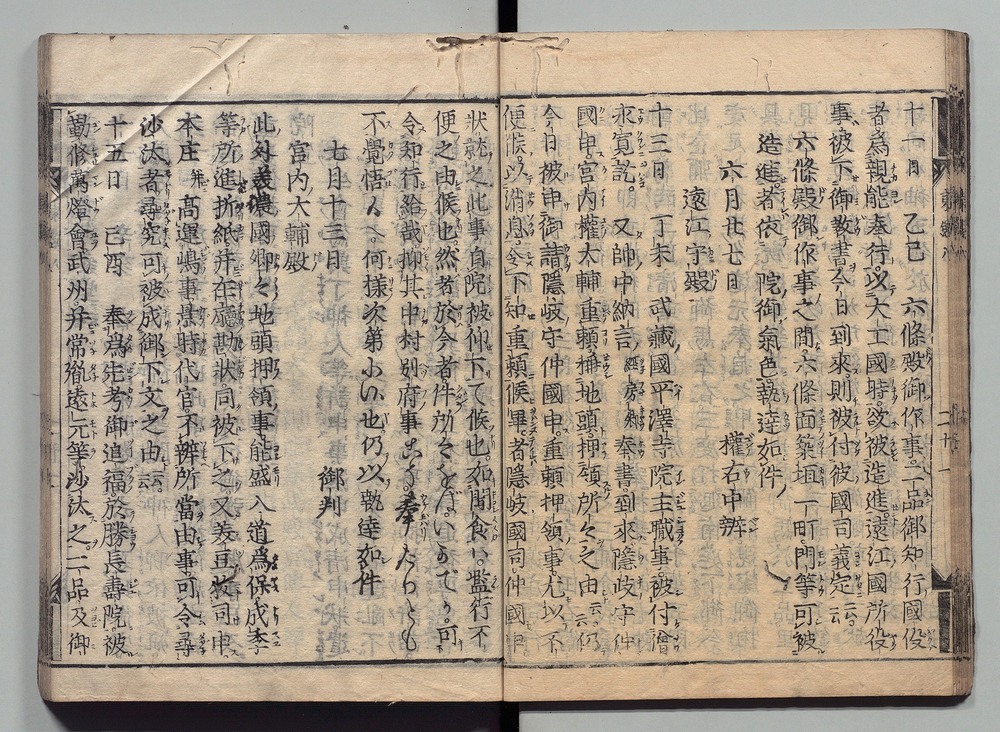 十一日 乙巳 六條殿御作事二品御知行國役
者為親能奉行以大工國時欲被造進遠江國所役
事被下御教書今日到來則被付彼國司義定云云
六條殿御作事之間六條面築垣一町門等可被
造進者依 院御氣色執達如件
六月廿七日 權右中辨
遠江守殿
十三日 丁未 武藏國平澤寺院主職事被付僧
求寛訖 又帥中納言經房卿奉書到來隠岐守仲
國申宮内權大輔重頼補地頭押領所々之由云云仍
今日被申御請隠岐守仲國申重頼押領事尤以不
便候以消息令下知重頼候畢者隠岐國司仲國申
狀就之此事自院被仰下て候也如聞食は濫行不
便之由候也然者於今者件所々をばいかで可
令知行給哉抑其中村別府事
不覺悟候何様次第候也仍以執達如件
七月十三日 御判
宮内大輔殿
此外美濃國郷々地頭押領事能盛入道為保成季
等所進折紙并在廳勘狀同被下之又美豆牧司申
本庄并高運嶋事景時代官不辨所當由事可令尋
沙汰者尋究可被成御下文之由云云
十五日 己酉 奉為先考御追福於勝長壽院被
勤修萬燈會武州并常胤遠元等沙汰之二品及御